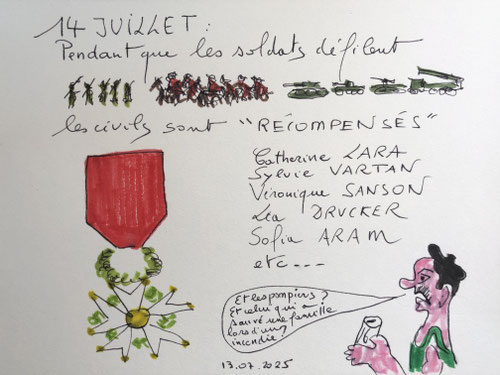 14 JUILLET :
Pendant que les soldats défilent
les civils sont "RÉCOMPENSÉS"
Catherine LARA
Sylvie VARTAN
Véronique SANSON
Léa DRUCKER
Sofia ARAM
etc ---
Et les pompiers ?
Et celui qui a
sauvé une famille
lors d'un
incendie ?
13.07.2025